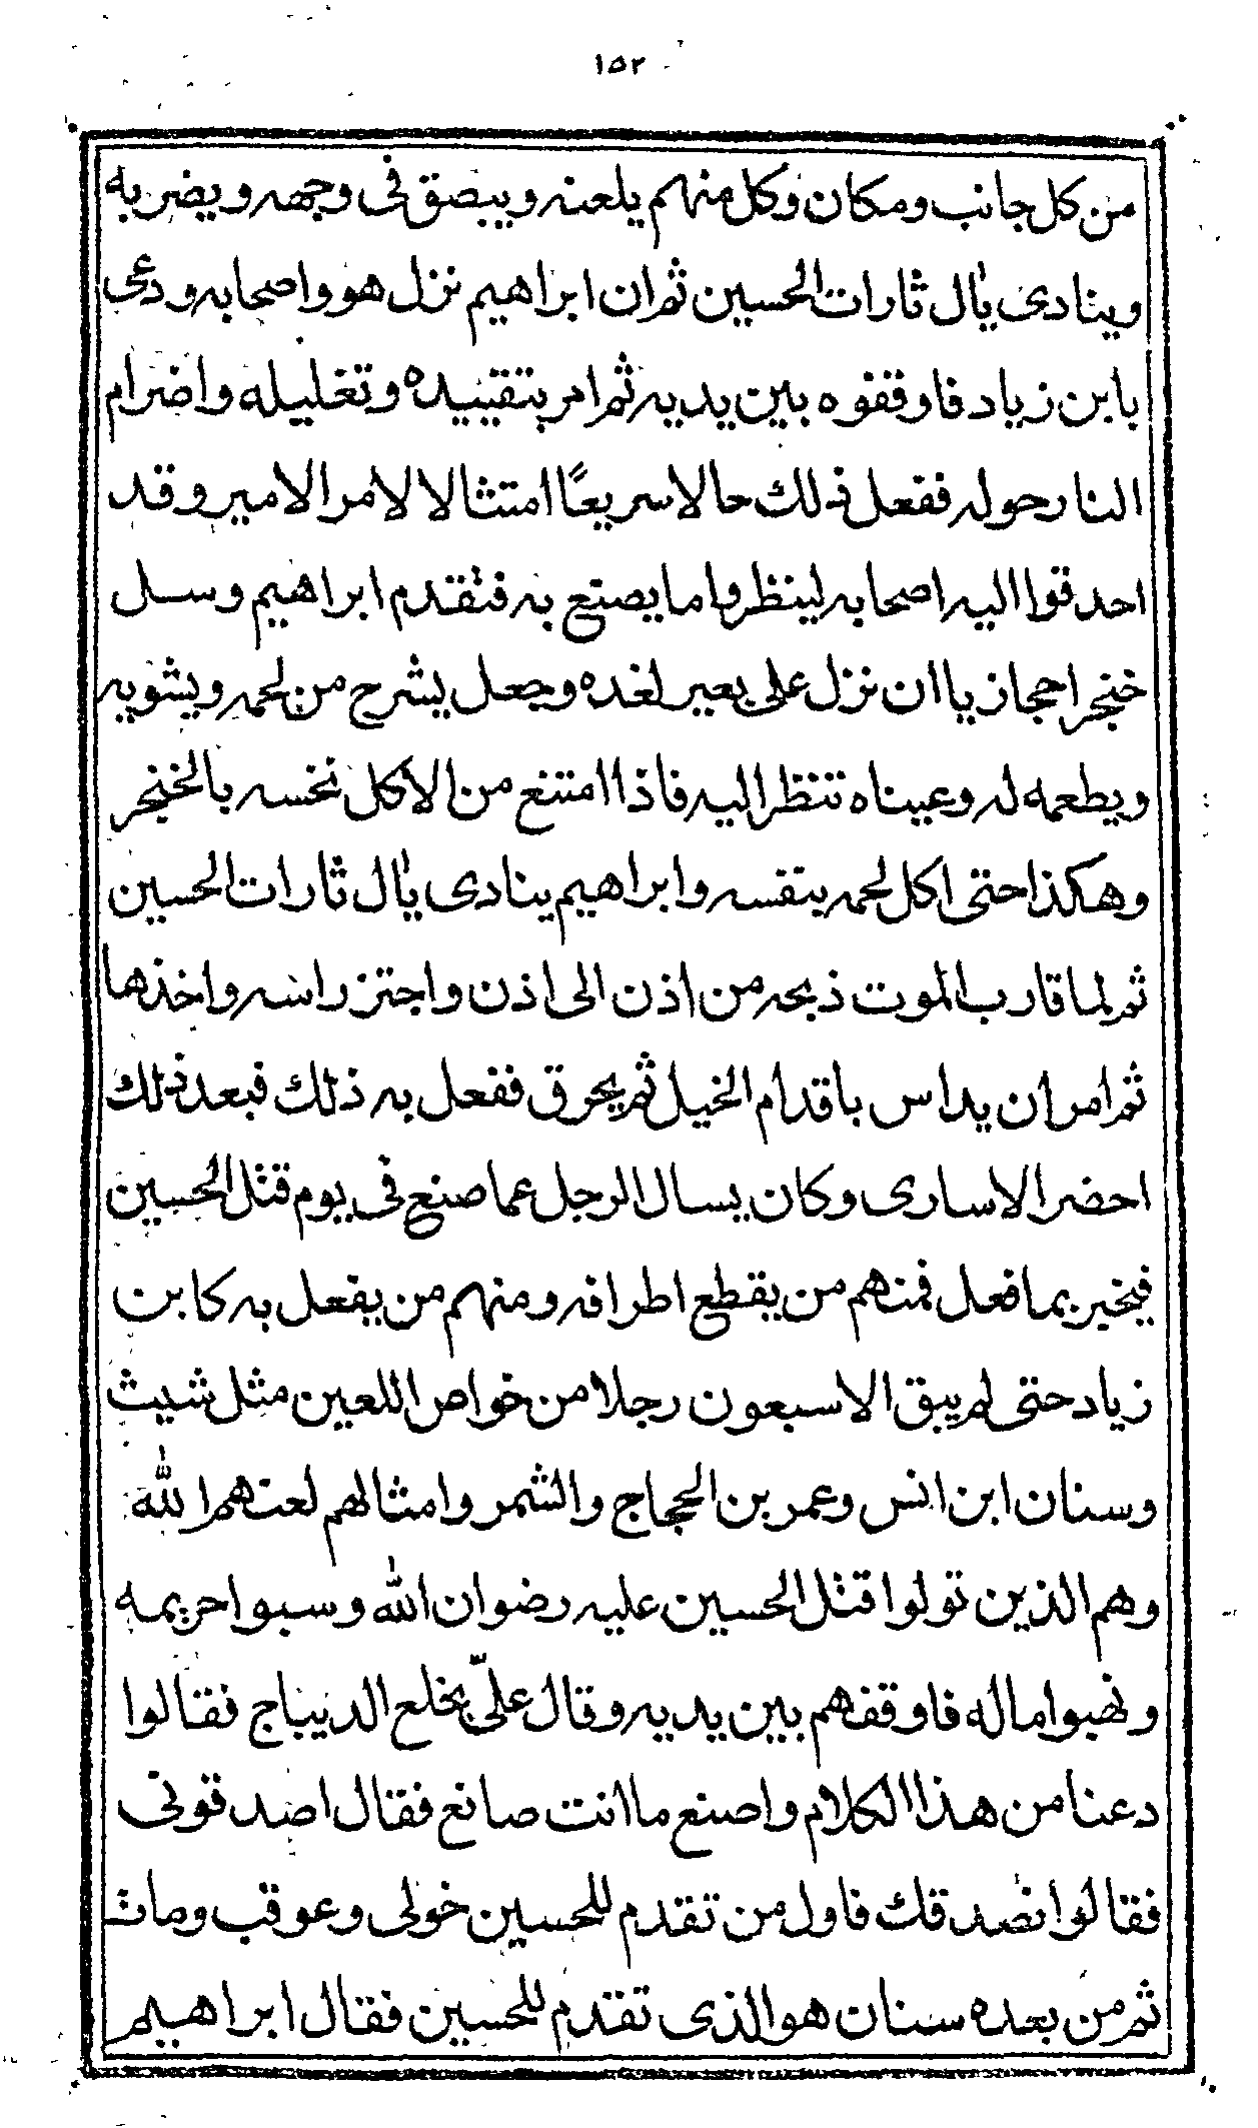 ١٥٢
من كل جانب ومكان وكل منهم يلعنه ويبصق فى وجهه ويضربه
وينادى يٰال ثارات الحسين ثم ان ابراهيم نزل هو واصحابه ودعى
بابن زياد فاوقفوه بين يديه ثم امر بتقييده وتغليله واضرام
النار حوله ففعل ذلك حالا سريعًا امتثالا لامر الامير وقد
احدقوا اليه اصحابه لينظروا ما يصنع به فتقدم ابراهيم وسل
خنجرا حجازيا ان نزل على بعير لغده وجعل يشرح من لحمه ويشويه
ويطعمه له وعيناه تنظر اليه فاذا امتنع من الاكل نخسه بالخنجر
وهكذا حتى اكل لحمه بنفسه وابراهيم ينادى يٰال ثارات الحسين
ثم لما قارب الموت ذبحه من اذن الى اذن واجتز راسه واخذها
ثم امر ان يداس باقدام الخيل ثم يحرق ففعل به ذلك فبعد ذلك
احضر الاسارى وكان يسال الرجل عما صنع فى يوم قتل الحسين
فيخبر بما فعل فمنهم من يقطع اطرافه ومنهم من يفعل به كابن
زياد حتى لم يبق الا سبعون رجلا من خواص اللعين مثل شيث
وسنان ابن انس وعمر بن الحجاج والشمر وامثالهم لعنهم الله
وهم الذين تولوا قتل الحسين عليه رضوان الله وسبوا حريمه
ونهبوا ماله فاوقفهم بين يديه وقال علىّ بخلع الديباج فقالوا
دعنا من هذا الكلام واصنع ما انت صانع فقال اصدقونى
فقالوا نصدقك فاول من تقدم للحسين خولى وعوقب ومات
ثم من بعده سنان هو الذى تقدم للحسين فقال ابراهيم